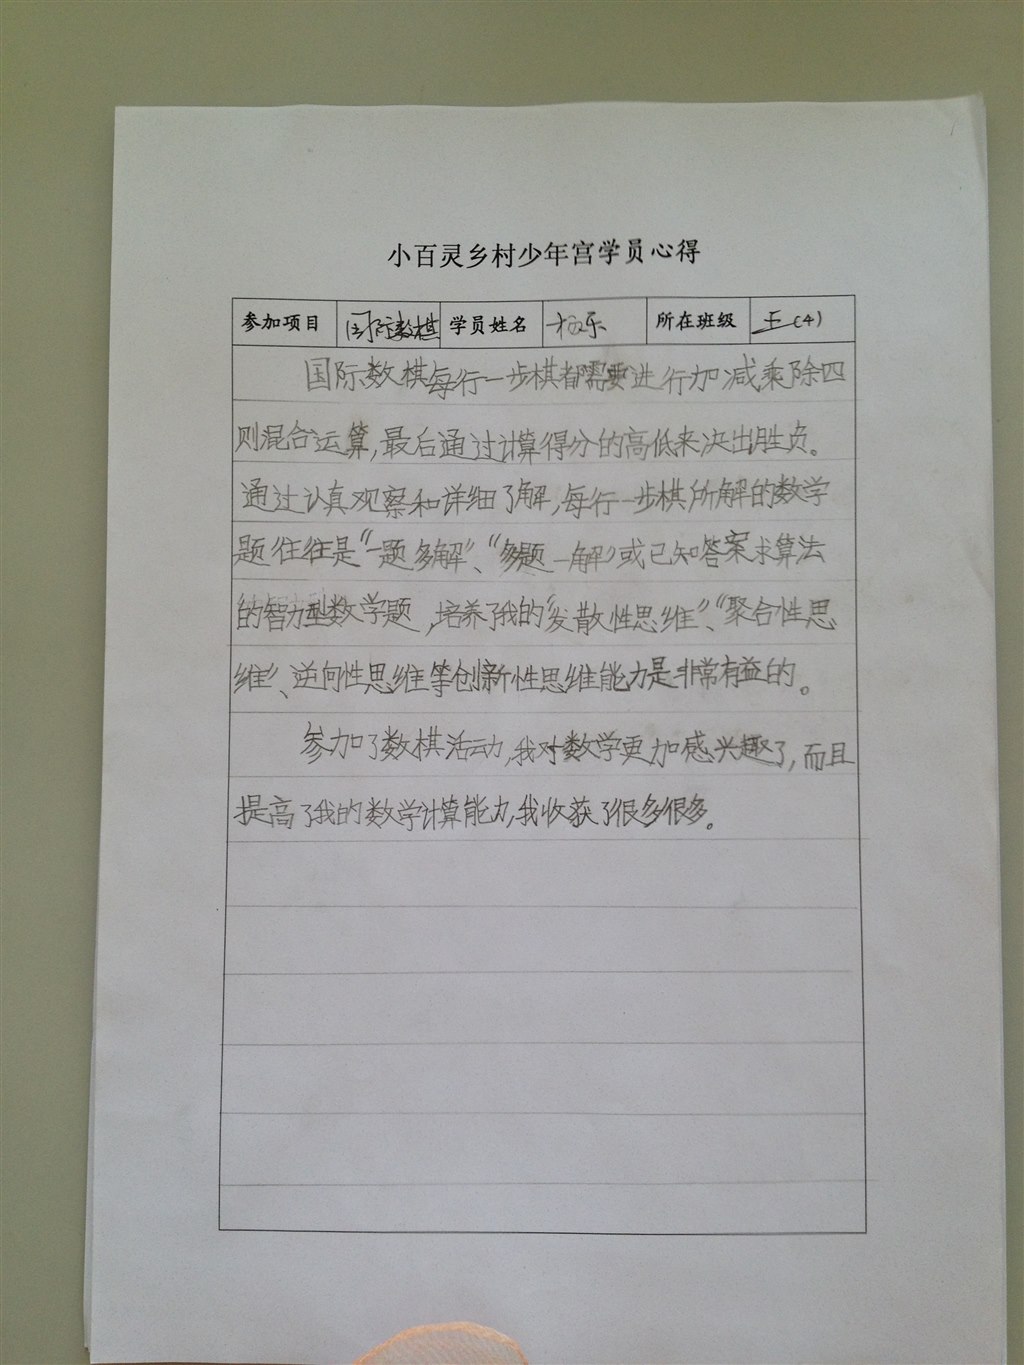 小百灵乡村少年宫学员心得
参加项目 国际数棋 学员姓名 杨乐 所在班级 五(4)
国际数棋每行一步棋都需要进行加减乘除四
则混合运算,最后通过计算得分的高低来决出胜负。
通过认真观察和详细了解,每行一步棋所解的数学
题往往是“一题多解”、“多题一解”或已知答案求算法
的智力型数学题,培养了我的“发散性思维”、“聚合性思
维”、逆向性思维等创新性思维能力是非常有益的。
参加了数棋活动,我对数学更加感兴趣了,而且
提高了我的数学计算能力,我收获了很多很多。